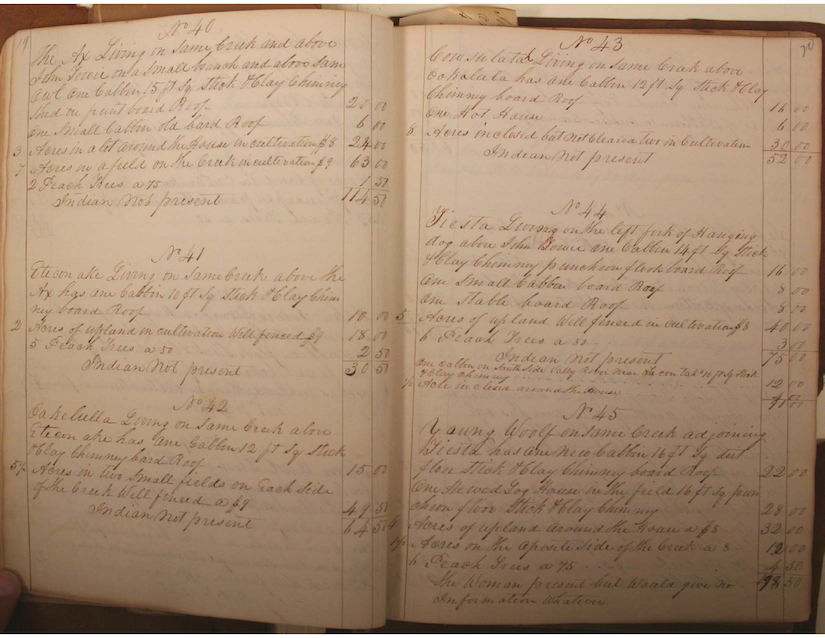 19
No 40
The Ax Living on Same Creek and above
John Towie on a Small branch and above Sam
Owl One Cabbin 15 ft Sq Stick & Clay Chimny
board Roof 20 00
One Small Cabbin old bard Roof 6 00
3 Acres in a lot around the House in cultivation $8 24 00
7 Acres in a field on the Creek in cultivation $9 63 00
2 Peach Trees a 75 1 50
Indian Not present 114 50
No 41
Etecon ake Living on Same Creek above the
Ax has one Cabbin 10 ft Sq Stick & Clay Chim
ny board Roof 10 00
2 Acres of upland in cultivation Well fenced $9 18 00
5 Peach Trees a 50 2 50
Indian Not present 30 50
No 42
Living on Same Creek above
Etecon ake has one Cabbin 12 ft Sq Stick
& Clay Chimny bard Roof 15 00
5½ Acres in two Small fields on Each Side
of the Creek Well fenced a $9 49 50
Indian Not present 64 50
20
No 43
Living on Same Creek above
has one Cabbin 12 ft Sq Stick & Clay
Chimny board Roof 16 00
One Hot House 6 00
Acres inclosed but Not Cleared two in Cultivation 30 00
Indian Not present 52 00
No 44
Tiesta Living on the left fork of Hanging
dog above John Towie One Cabbin 14 ft Sq Stick
& Clay Chimny puncheon floor board Roof 16 00
One Small Cabbin board Roof 8 00
One Stable board Roof 8 00
5 Acres of upland Well fenced in Cultivation $8 40 00
6 Peach Trees a 50 3 00
Indian Not present 75 00
One Cabbin on South Side Vally River Near 10 ft Sq Stick
& Clay Chimny 12 00
½ Acre inclosed around the House
No 45
Young Woolf on Same Creek adjoining
Tiesta has one New Cabbin 16 ft Sq dirt
floor Stick & Clay Chimny board Roof 22 00
One Hewed Log House in the field 16 ft Sq pun
cheon floor Stick & Clay Chimny 28 00
4 Acres of upland around the House a $8 32 00
1½ Acres on the oposite Side of the Creek a 8 12 00
6 Peach Trees a 75 4 50
The Woman present but Would give no 98 50
Information Whatever